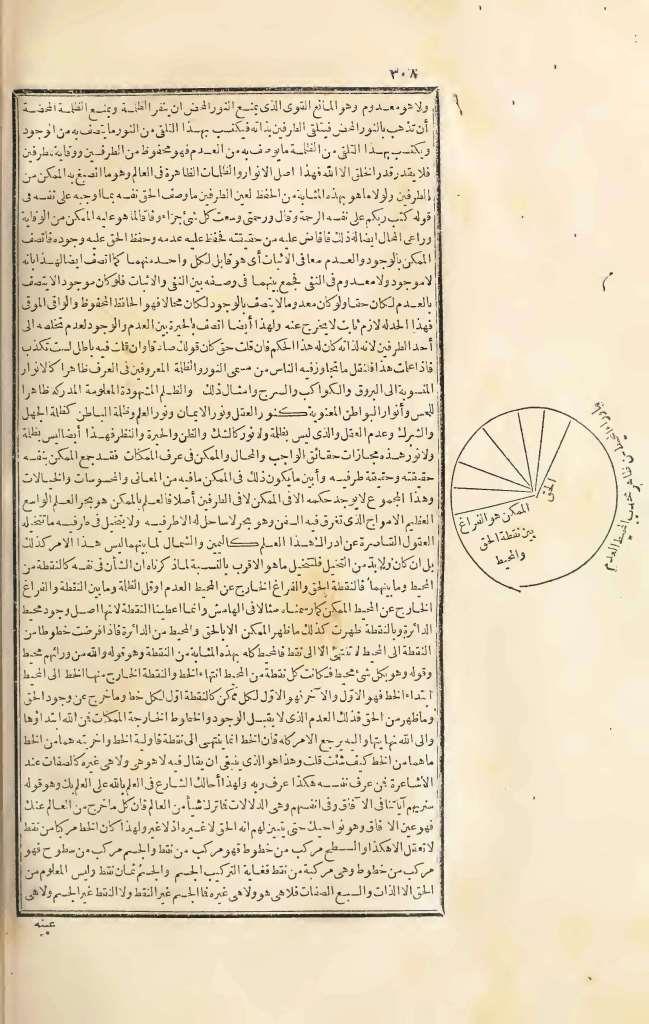 ٣٠٨
ولا هو معدوم وهو المانع القوى الذى يمنع النور المحض ان ينفر الظلمة ويمنع الظلمة المحضة
أن تذهب بالنور المحض فيتلقى الطرفين بذاته فيكتسب بهذا التلقى من النور ما يتصف به من الوجود
ويكتسب بهذا التلقى من الظلمة ما يوصف به من العدم فهو محفوظ من الطرفين ووقاية للطرفين
فلا يقدر قدر الخلق الا الله فهذا اصل الانوار والظلمات الظاهرة فى العالم وهو ما انصبغ به الممكن من
الطرفين ولولا ما هو بهذه المثابة من الحفظ لعين الطرفين ما وصف الحق نفسه بما اوجبه على نفسه فى
قوله كتب ربكم على نفسه الرحمة وقال ورحمتى وسعت كل شئ جزاء وفاقا لما هو عليه الممكن من الوقاية
وراعى المحال ايضا له ذلك فأفاض عليه من حقيقته فحفظ عليه عدمه وحفظ الحق عليه وجوده فاتصف
الممكن بالوجود والعدم معا فى الاثبات أى هو قابل لكل واحد منهما كما اتصف ايضا لهذا بانه
لا موجود ولا معدوم فى النفى فجمع بينهما فى وصفه بين النفى والاثبات فلو كان موجودا لا يتصف
بالعدم لكان حقا ولو كان معدوما لا يتصف بالوجود لكان محالا فهو الحافظ المحفوظ والواقى الموقى
فهذا الحد له لازم ثابت لا يخرج عنه ولهذا أيضا اتصف بالحيرة بين العدم والوجود لعدم تخلصه الى
أحد الطرفين لانه لذاته كان له هذا الحكم فان قلت حق كان قولك صادقا وان قلت فيه باطل لست تكذب
فاذا علمت هذا فلنقل ما يتجاوز فيه الناس من مسمى النور والظلمة المعروفين فى العرف ظاهرا كالانوار
المنسوبة الى البروق والكواكب والسرج وامثال ذلك والظلم المشهودة المعلومة المدركة ظاهرا
للحس وأنوار البواطن المعنوية كنور العقل ونور الايمان ونور العلم وظلمة الباطن كظلمة الجهل
والشرك وعدم العقل والذى ليس بظلمة ولا نور كالشك والظن والحيرة والنظر فهذا أيضا ليس بظلمة
ولا نور هذه مجازات حقائق الواجب والمحال والممكن فى عرف الممكنات فقد جمع الممكن بنفسه
حقيقته وحقيقة طرفيه وأبين ما يكون ذلك فى الممكن ما فيه من المعانى والمحسوسات والخيالات
وهذا المجموع لا يوجد حكمه الا فى الممكن لا فى الطرفين أصلا فالعلم بالممكن هو بحر العلم الواسع
العظيم الامواج الذى تغرق فيه السفن وهو بحر لا ساحل له الا طرفيه ولا يتخيل فى طرفيه ما تتخيله
العقول القاصرة عن ادراك هذا العلم كاليمين والشمال لما بينهما ليس هذا الامر كذلك
بل ان كان ولا بد من التخيل فلتتخيل ما هو الاقرب بالنسبة لما ذكرناه ان الشأن فى نفسه كالنقطة من
المحيط وما بينهما فالنقطة الحق والفراغ الخارج عن المحيط العدم او قل الظلمة وما بين النقطة والفراغ
الخارج عن المحيط الممكن كما رسمناه مثالا فى الهامش وانما اعطينا النقطة لانها اصل وجود محيط
الدائرة وبالنقطة ظهرت كذلك ما ظهر الممكن الا بالحق والمحيط من الدائرة فاذا فرضت خطوطا من
النقطة الى المحيط لا تنتهى الا الى نقطة فالمحيط كله بهذه المثابة من النقطة وهو قوله والله من ورائهم محيط
وقوله وهو بكل شئ محيط فكانت كل نقطة من المحيط انتهاء الخط والنقطة الخارج منها الخط الى المحيط
ابتداء الخط فهو الاول والآخر فهو الاول لكل ممكن كالنقطة اول لكل خط وما خرج عن وجود الحق
وما ظهر من الحق فذلك العدم الذى لا يقبل الوجود والخطوط الخارجة الممكنات فمن الله ابتداؤها
والى الله نهايتها واليه يرجع الامر كله فان الخط انما ينتهى الى نقطة فأولية الخط وآخريته هما من الخط
ما هما من الخط كيف شئت قلت وهذا هو الذى ينبغى ان يقال فيه لا هو هى ولا هى غيره كالصفات عند
الأشاعرة فمن عرف نفسه هكذا عرف ربه ولهذا أحالك الشارع فى العلم بالله على العلم بك وهو قوله
سنريهم آياتنا فى الآفاق وفى انفسهم وهى الدلالات فما ترك شيأ من العالم فان كل ما خرج من العالم عنك
فهو عين الآفاق وهو نواحيك حتى يتبين لهم انه الحق لا غيره اذ لا غير ولهذا كان الخط مركبا من نقط
لا تعقل الا هكذا والسطح مركب من خطوط فهو مركب من نقط والجسم مركب من سطوح فهو
مركب من خطوط وهى مركبة من نقط فغاية التركيب الجسم والجسم ثمان نقط وليس المعلوم من
الحق الا الذات والسبع الصفات فلا هى هو ولا هى غيره فما الجسم غير النقط ولا النقط غير الجسم ولا هى
عينه
الحق
الممكن هو الفراغ
بين نقطة الحق
والمحيط
المحيط العدم